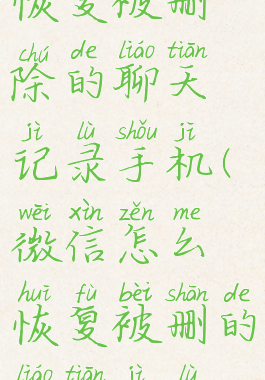 恢复被删
chú de liáo tiān
除的聊天
jì lù shǒu jī
记录手机(
wēi xìn zěn me
微信怎么
huī fù bèi shān de
恢复被删的
liáo tiān jì lù